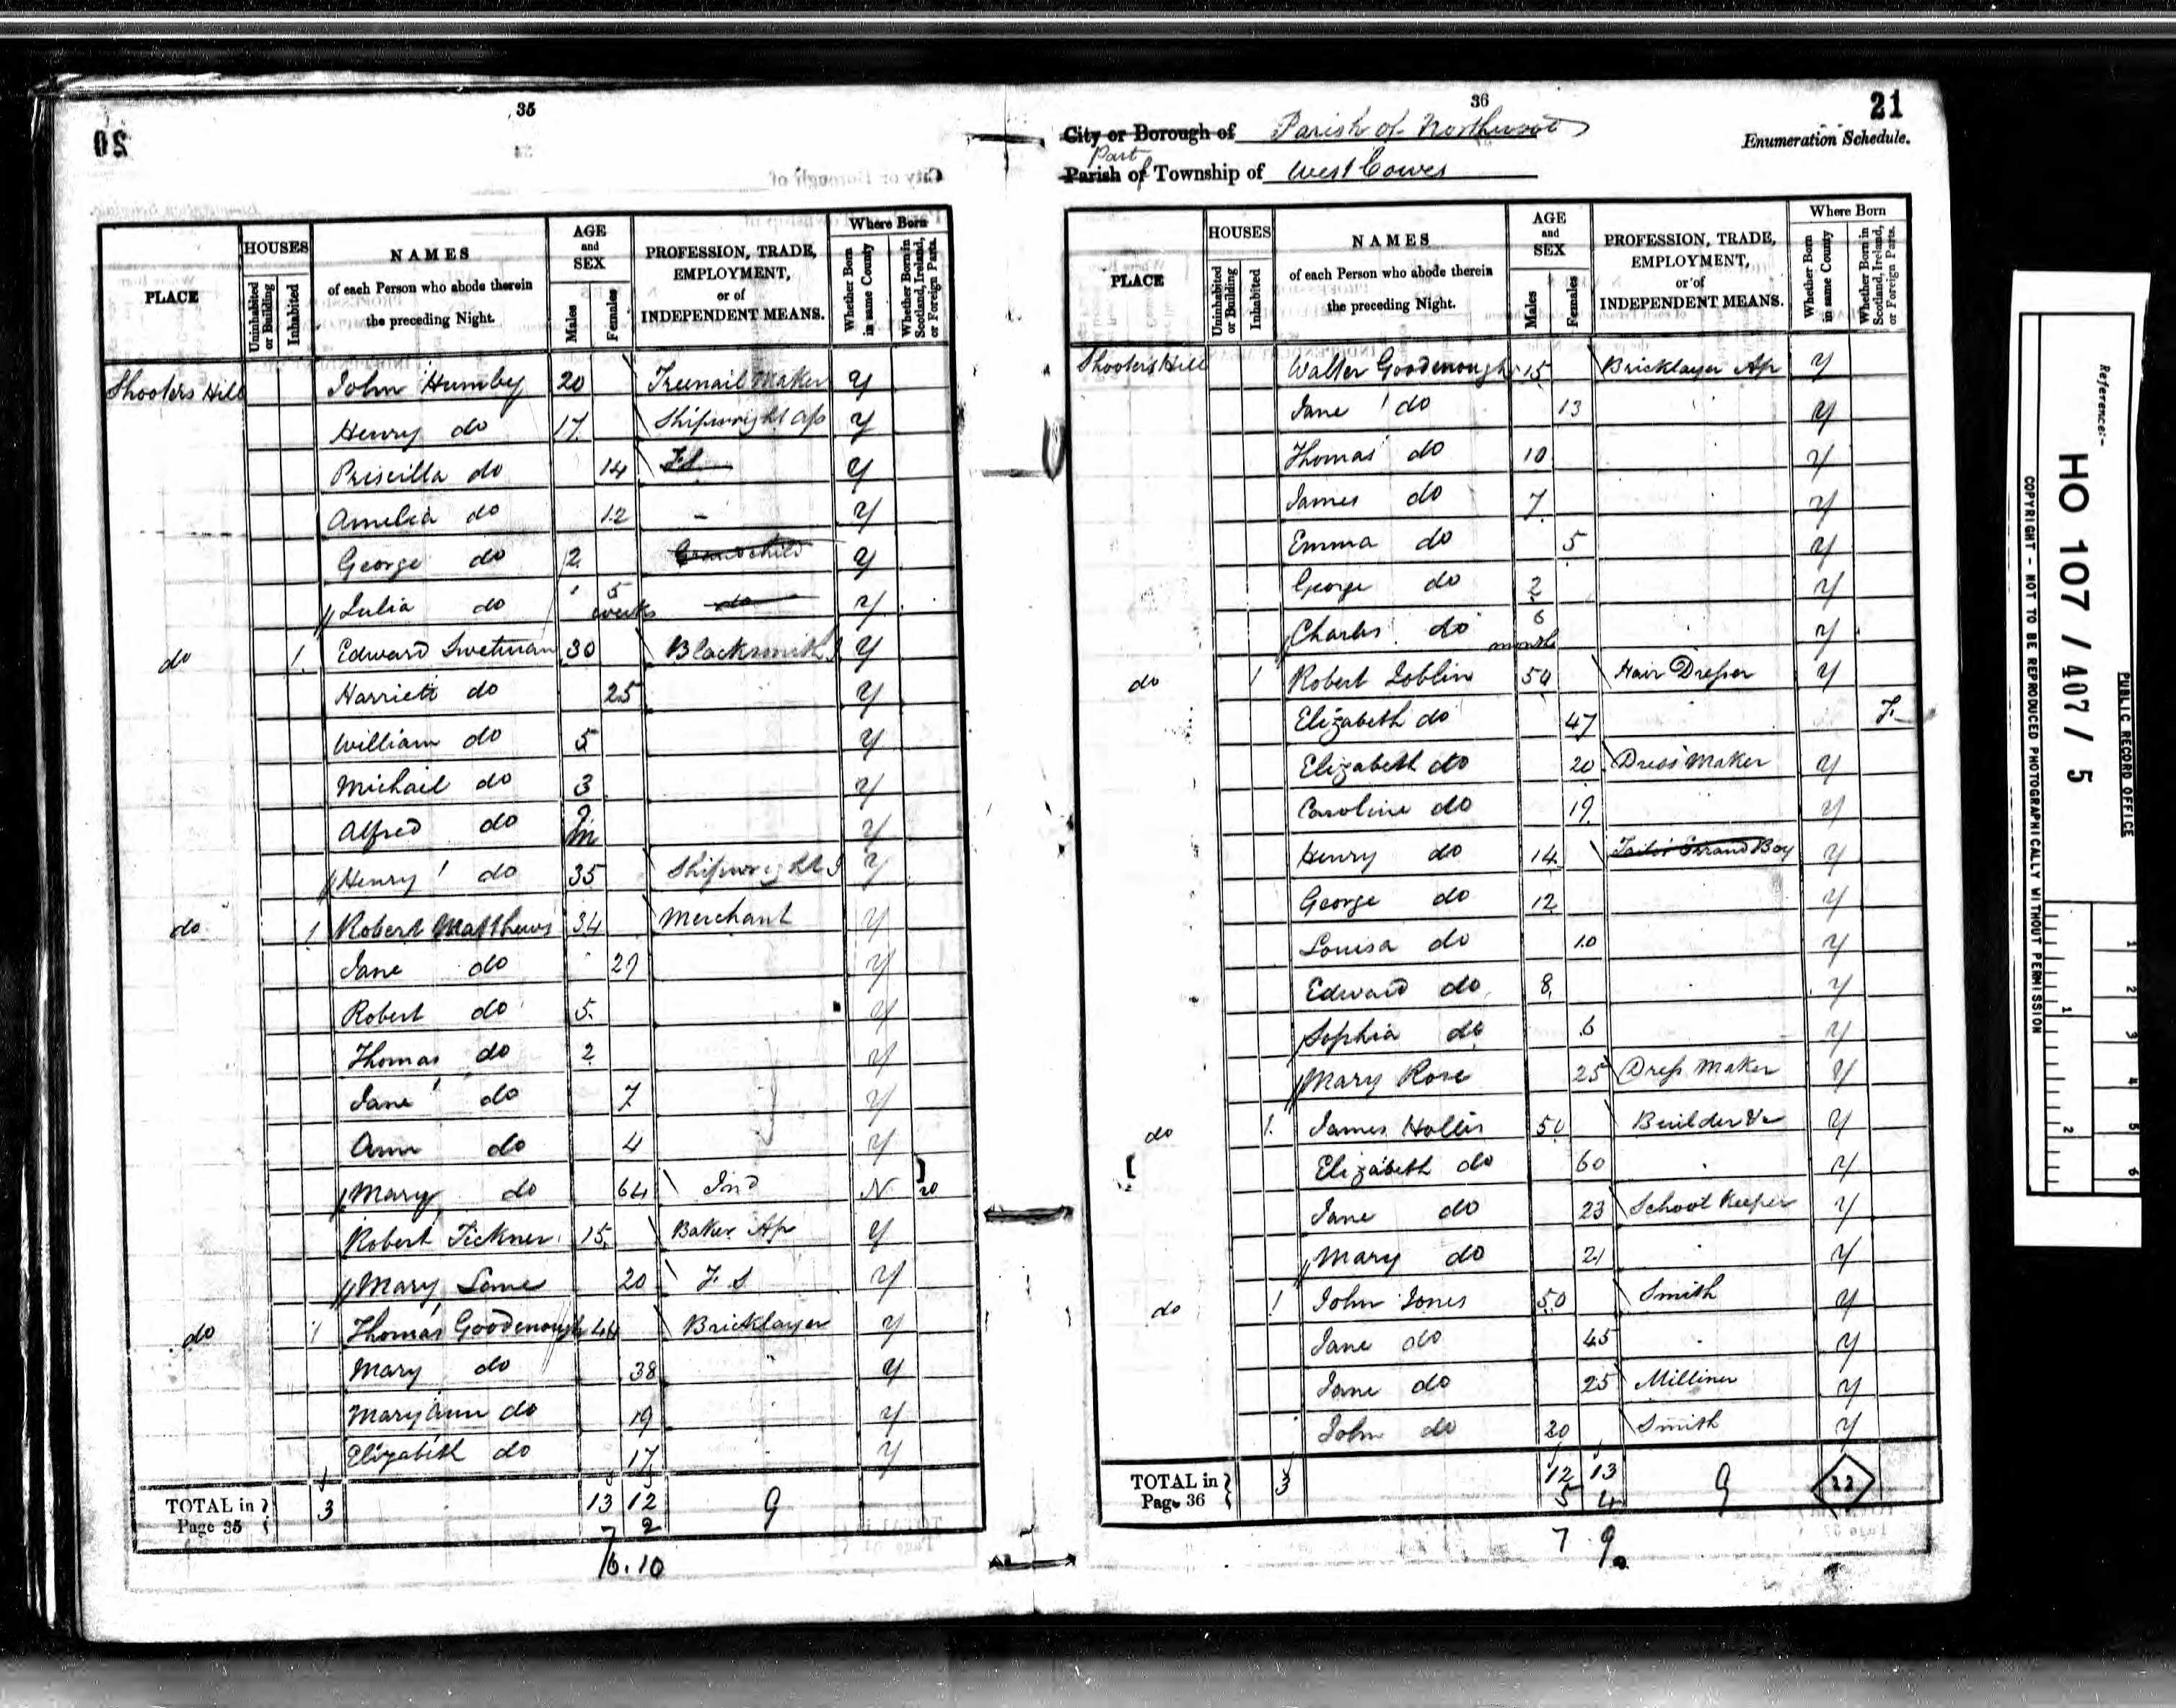 35
20
HOUSES
NAMES
AGE
and
SEX
PROFESSION, TRADE,
EMPLOYMENT,
or of
INDEPENDENT MEANS.
Where Born
PLACE
Uninhabited or Building
Inhabited
of each Person who abode therein
the preceding Night.
Males
Females
Whether Born in same County
Whether Born in Scotland, Ireland, or Foreign Parts.
Shooters Hill John Humby 20 Treenail Maker Y
Henry do 17 Shipwright Ap Y
Priscilla do 14 F.S. Y
Amelia do 12 - Y
George do 2 Grandchild Y
Julia do 5 weeks do Y
do 1 Edward Swetman 30 Blacksmith J Y
Harriett do 25 Y
William do 5 Y
Michail do 3 Y
Alfred do m Y
Henry do 35 Shipwright J Y
do 1 Robert Matthews 34 Merchant Y
Jane do 29 Y
Robert do 5 Y
Thomas do 2 Y
Jane do 7 Y
Ann do 4 Y
Mary do 64 Ind N
Robert Tickner 15 Baker Ap Y
Mary Lane 20 F S Y
do 1 Thomas Goodenough 44 Bricklayer Y
Mary do 38 Y
Mary Ann do 19 Y
Elizabeth do 17 Y
TOTAL in Page 35 3 13 12 9
7 2
6. 10
36
21
City or Borough of Parish of Northwood
Enumeration Schedule.
Part
Parish of Township of West Cowes
PLACE
HOUSES
Uninhabited or Building
Inhabited
NAMES
of each Person who abode therein
the preceding Night.
AGE
and
SEX
Males
Females
PROFESSION, TRADE,
EMPLOYMENT,
or of
INDEPENDENT MEANS.
Where Born
Whether Born in same County
Whether Born in Scotland, Ireland, or Foreign Parts.
Shooters Hill Walter Goodenough 15 Bricklayer Ap Y
Jane do 13 Y
Thomas do 10 Y
James do 7 Y
Emma do 5 Y
George do 2 Y
Charles do 6 month Y
do 1 Robert Joblin 50 Hair Dresser Y
Elizabeth do 47 F.
Elizabeth do 20 Dress Maker Y
Caroline do 19 Y
Henry do 14 Errand Boy Y
George do 12 Y
Louisa do 10 Y
Edward do 8 Y
Sophia do 6 Y
Mary Rose 25 Dress Maker Y
do 1 James Hollis 50 Builder &c Y
Elizabeth do 60 Y
Jane do 23 School Keeper Y
Mary do 21 Y
do 1 John Jones 50 Smith Y
Jane do 45 Y
Jane do 25 Milliner Y
John do 20 Smith Y
TOTAL in Page 36 3 12 13 9 22
5 4
7 9
Reference:-
HO 107 / 407 / 5
PUBLIC RECORD OFFICE
COPYRIGHT - NOT TO BE REPRODUCED PHOTOGRAPHICALLY WITHOUT PERMISSION
1 2 3 4 5 6
1 2